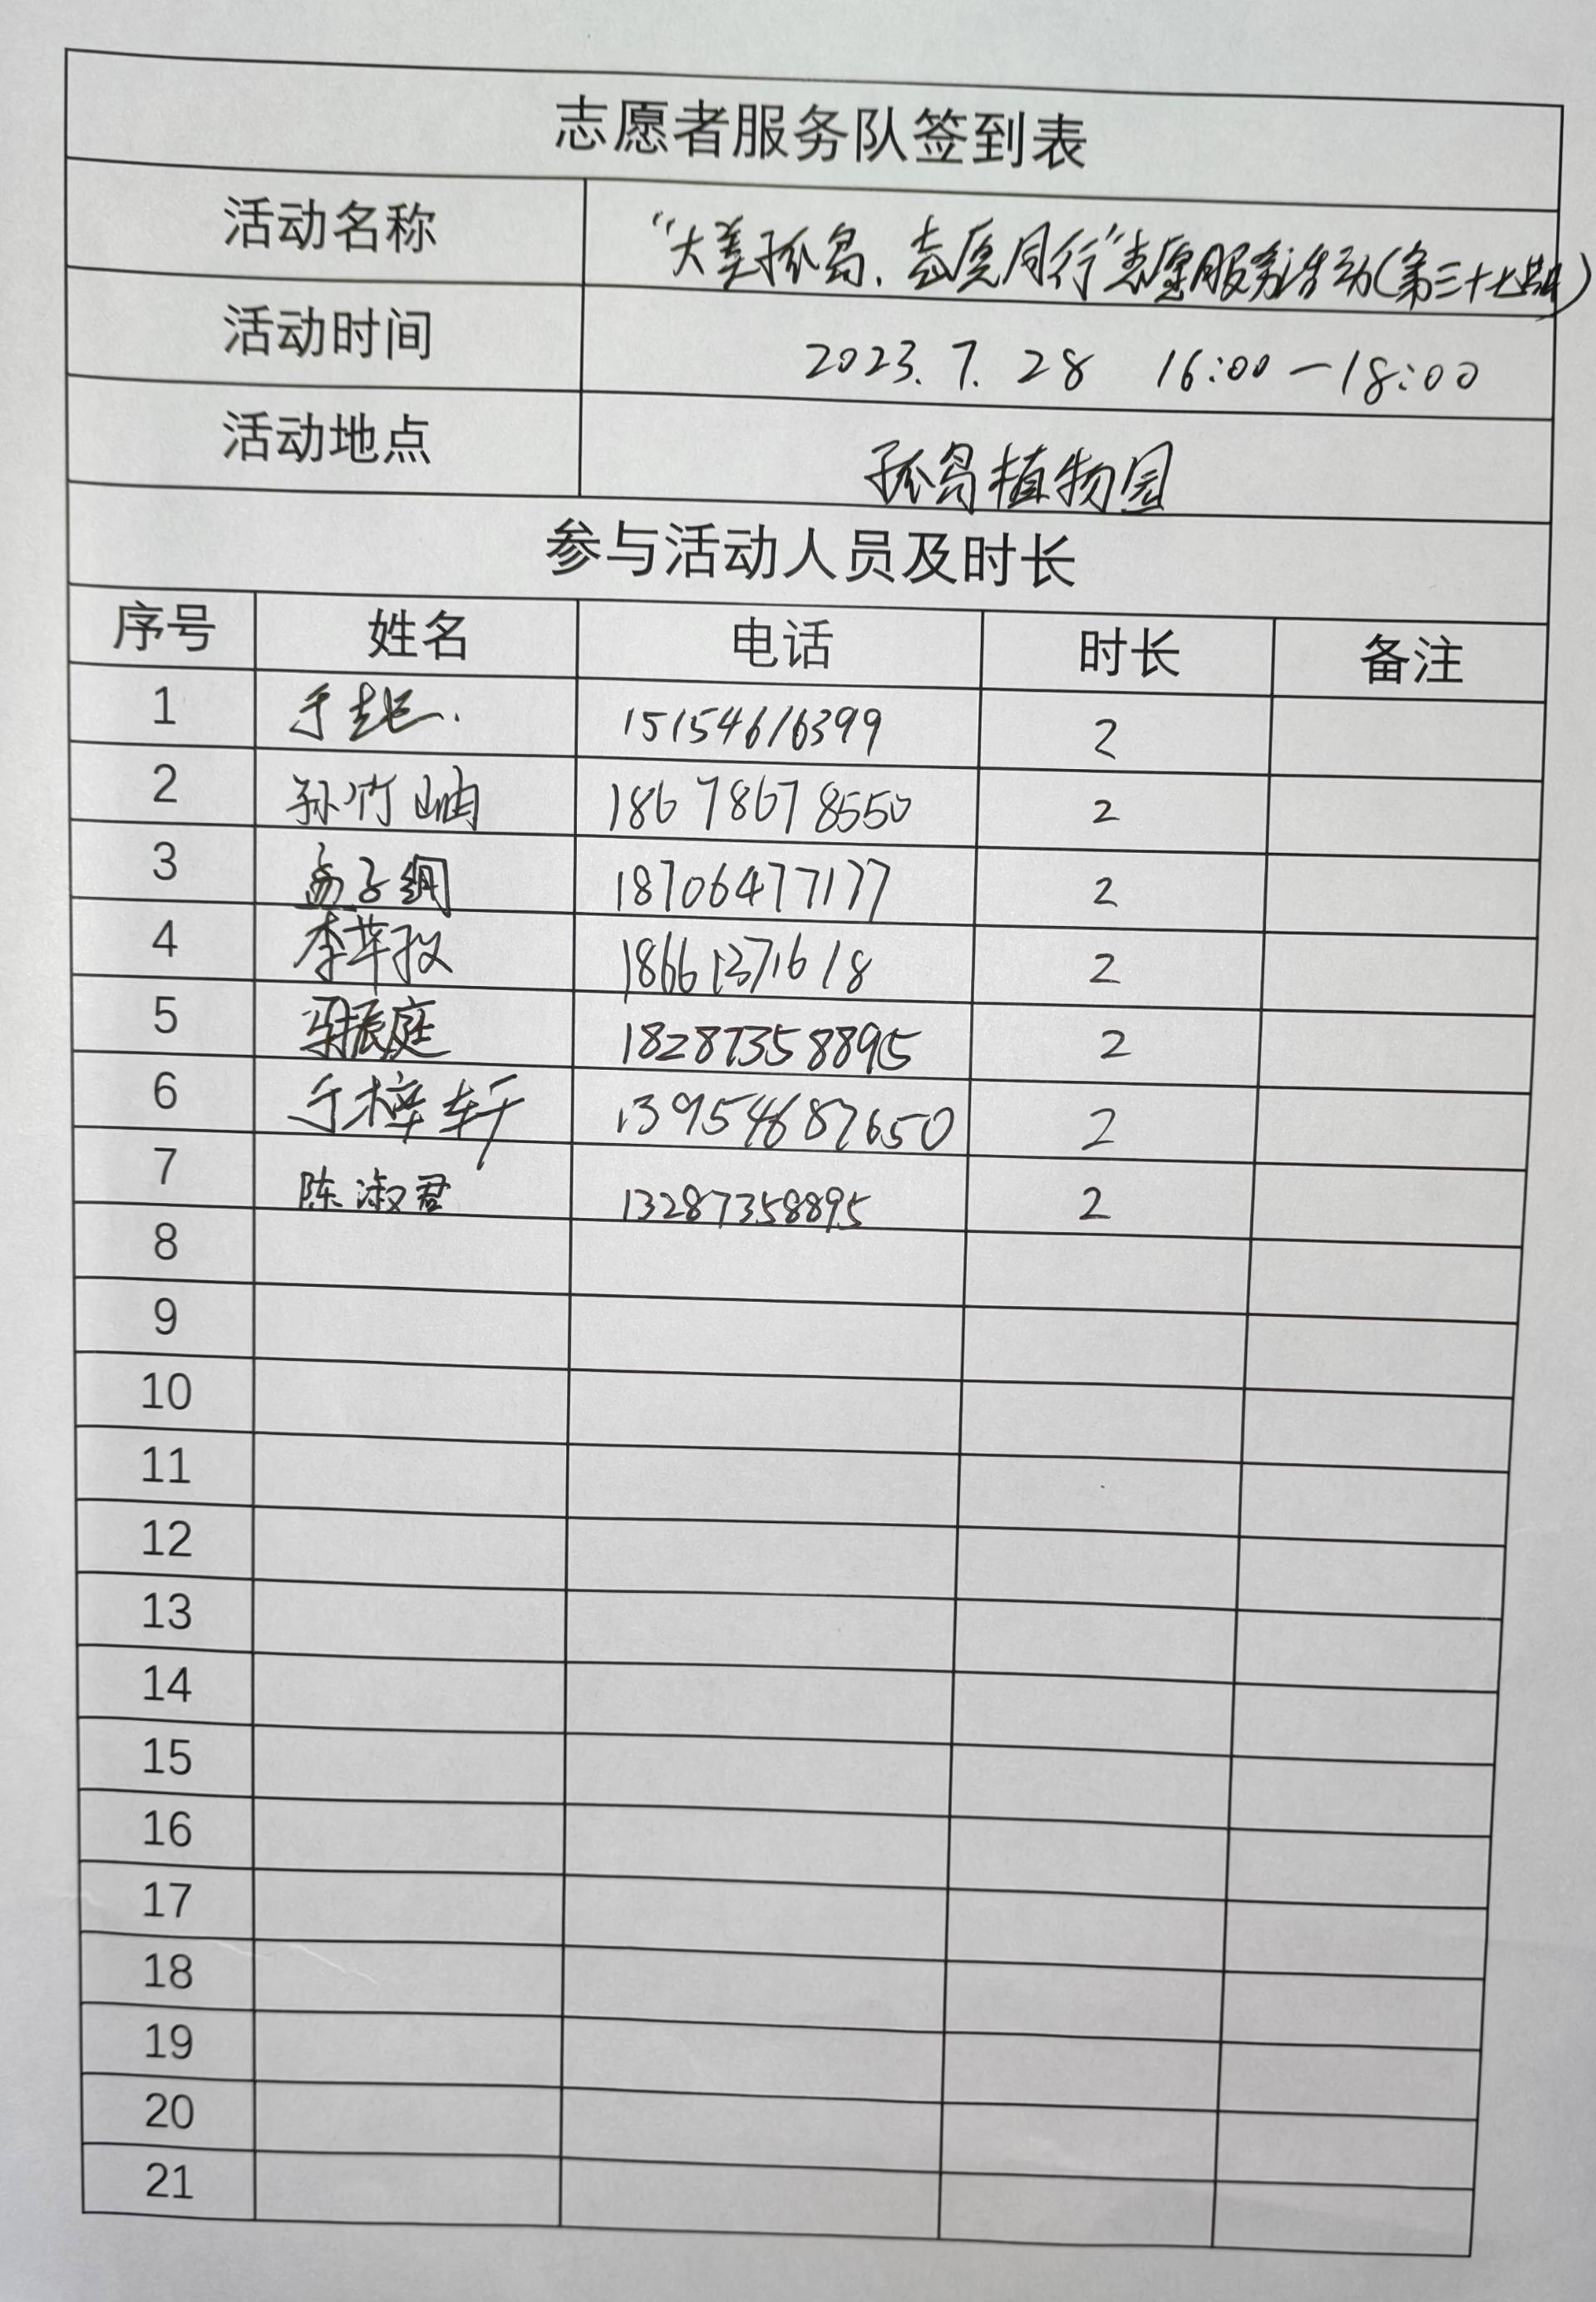 志愿者服务队签到表
活动名称 “大美孤岛、志愿同行”志愿服务活动(第三十七期)
活动时间 2023.7.28 16:00—18:00
活动地点 孤岛植物园
参与活动人员及时长
序号 姓名 电话 时长 备注
1 于起 15154616399 2
2 孙竹岫 18678678550 2
3 孟子钢 18706477177 2
4 李 18661371618 2
5 振庭 18287358895 2
6 于樟轩 13954687650 2
7 陈淑君 13287358895 2
8
9
10
11
12
13
14
15
16
17
18
19
20
21